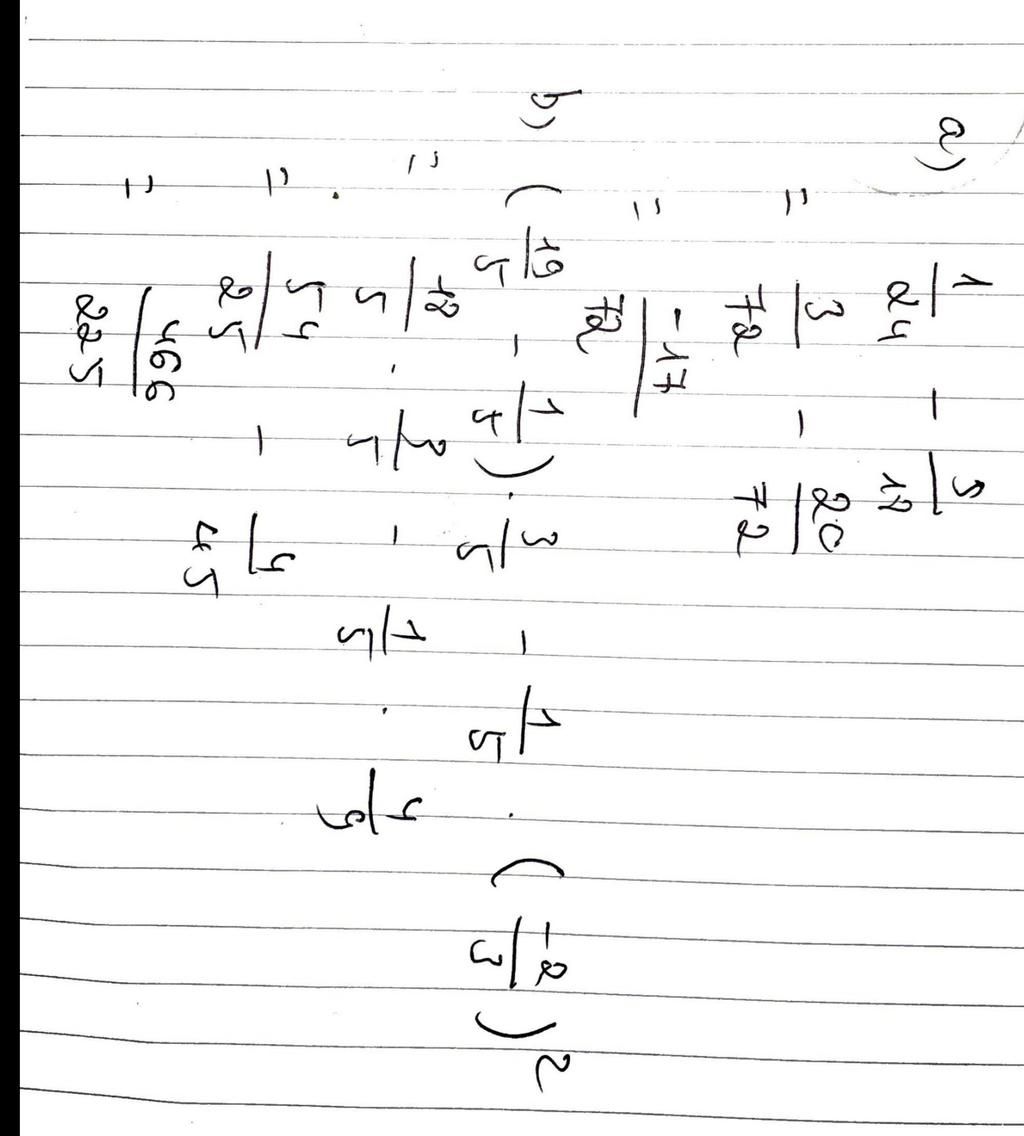 a) 1/24 - 5/18
= 3/72 - 20/72
= -17/72
b) (19/5 - 1/5) · 3/5 - 1/5 · (-2/3)²
= 18/5 · 3/5 - 1/5 · 4/9
= 54/25 - 4/45
= 466/225